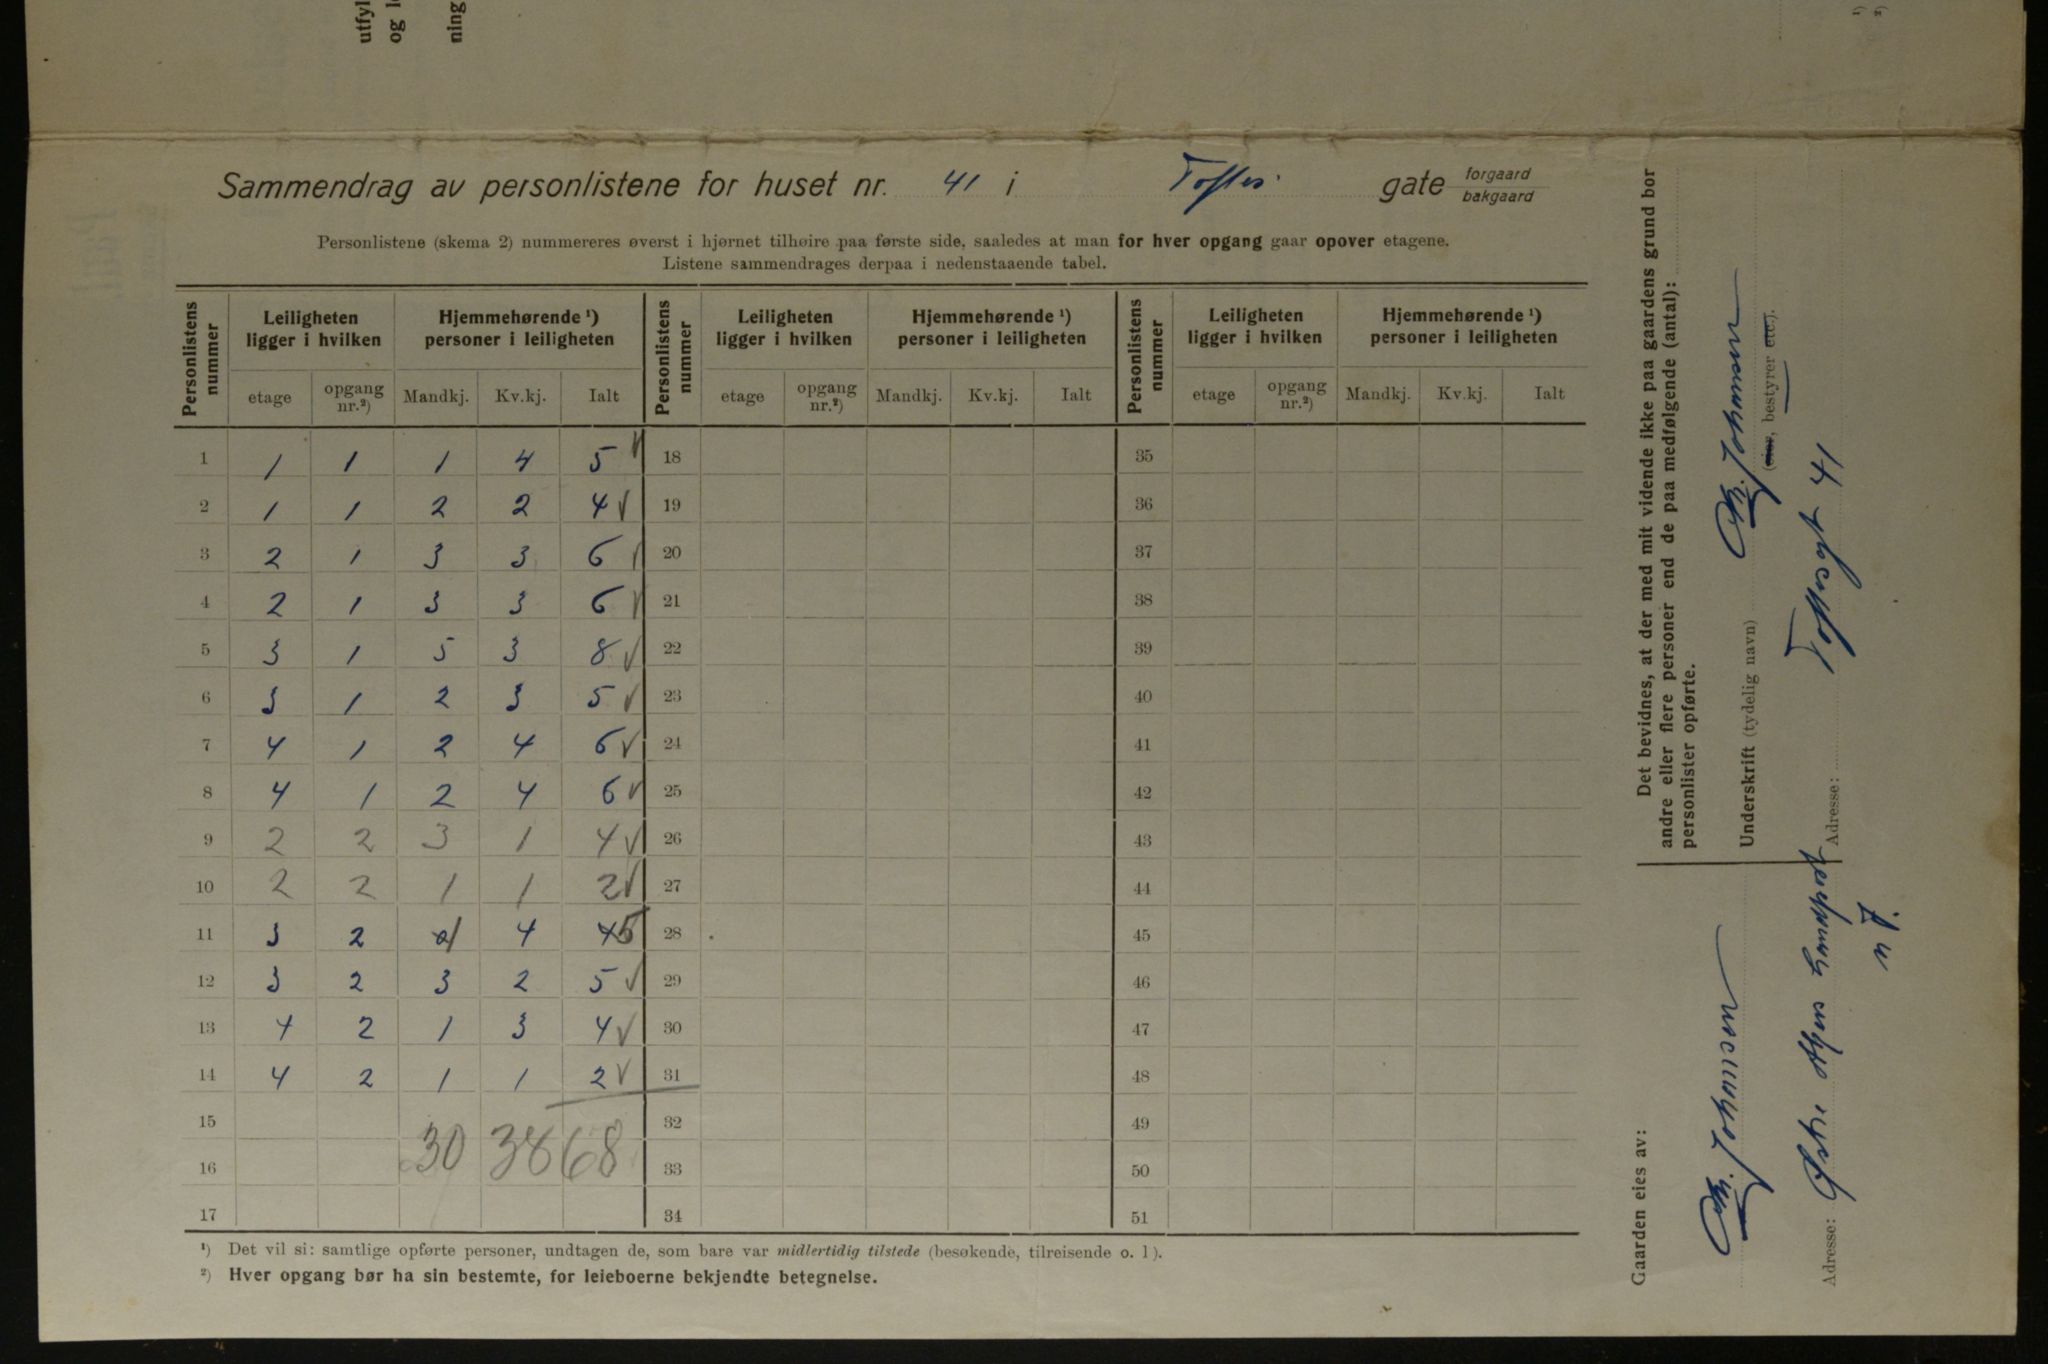 utfyl
og l
ning
¹)
²)
Sammendrag av personlistene for huset nr. 41 i Toftes gate forgaard bakgaard
Personlistene (skema 2) nummereres øverst i hjørnet tilhøire paa første side, saaledes at man for hver opgang gaar opover etagene.
Listene sammendrages derpaa i nedenstaaende tabel.
Personlistens nummer | Leiligheten ligger i hvilken | Hjemmehørende ¹) personer i leiligheten | Personlistens nummer | Leiligheten ligger i hvilken | Hjemmehørende ¹) personer i leiligheten | Personlistens nummer | Leiligheten ligger i hvilken | Hjemmehørende ¹) personer i leiligheten
etage | opgang nr.²) | Mandkj. | Kv.kj. | Ialt | etage | opgang nr.²) | Mandkj. | Kv.kj. | Ialt | etage | opgang nr.²) | Mandkj. | Kv.kj. | Ialt
1 1 1 1 4 5 18 35
2 1 1 2 2 4 19 36
3 2 1 3 3 6 20 37
4 2 1 3 3 6 21 38
5 3 1 5 3 8 22 39
6 3 1 2 3 5 23 40
7 4 1 2 4 6 24 41
8 4 1 2 4 6 25 42
9 2 2 3 1 4 26 43
10 2 2 1 1 2 27 44
11 3 2 1 4 4 5 28 45
12 3 2 3 2 5 29 46
13 4 2 1 3 4 30 47
14 4 2 1 1 2 31 48
15 32 49
30 38 68
16 33 50
17 34 51
¹) Det vil si: samtlige opførte personer, undtagen de, som bare var midlertidig tilstede (besøkende, tilreisende o. l.).
²) Hver opgang bør ha sin bestemte, for leieboerne bekjendte betegnelse.
Det bevidnes, at der med mit vidende ikke paa gaardens grund bor
andre eller flere personer end de paa medfølgende (antal):
personlister opførte.
Underskrift (tydelig navn) Johnsen
(eier, bestyrer etc.).
Adresse: Toftesgt 41
Gaarden eies av:
Johnsen
Adresse: